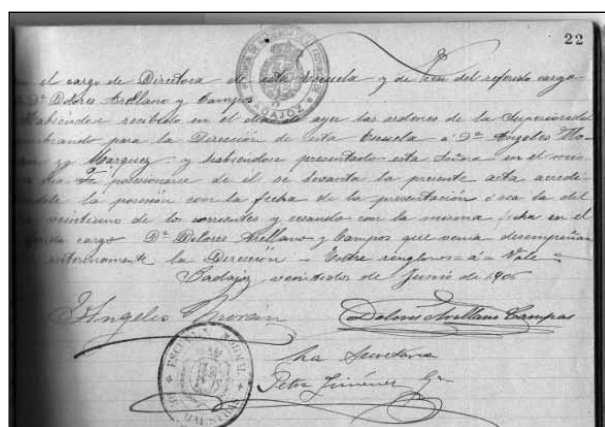 22
en el cargo de Directora de esta Escuela y de cese del referido cargo
Dª Dolores Arellano y Campos
Habiéndose recibido en el día de ayer las órdenes de la Superioridad
nombrando para la Dirección de esta Escuela á Dª Angeles Mo-
y Marquez y habiéndose presentado esta Señora en el mis
día á posesionarse de el se levanta la presente acta acredi-
la posesión con la fecha de la presentación ó sea la del
veintiuno de los corrientes y cesando con la misma fecha en el
cargo Dª Dolores Arellano y Campos que venia desempeñan
interinamente la Dirección = Entre renglones = á = Vale =
Badajoz veintidos de Junio de 190
Angeles Morán Dolores Arellano Campos
La Secretaria
Petra Jiménez
BADAJOZ
ESCUELA NORMAL
DE MAESTRAS